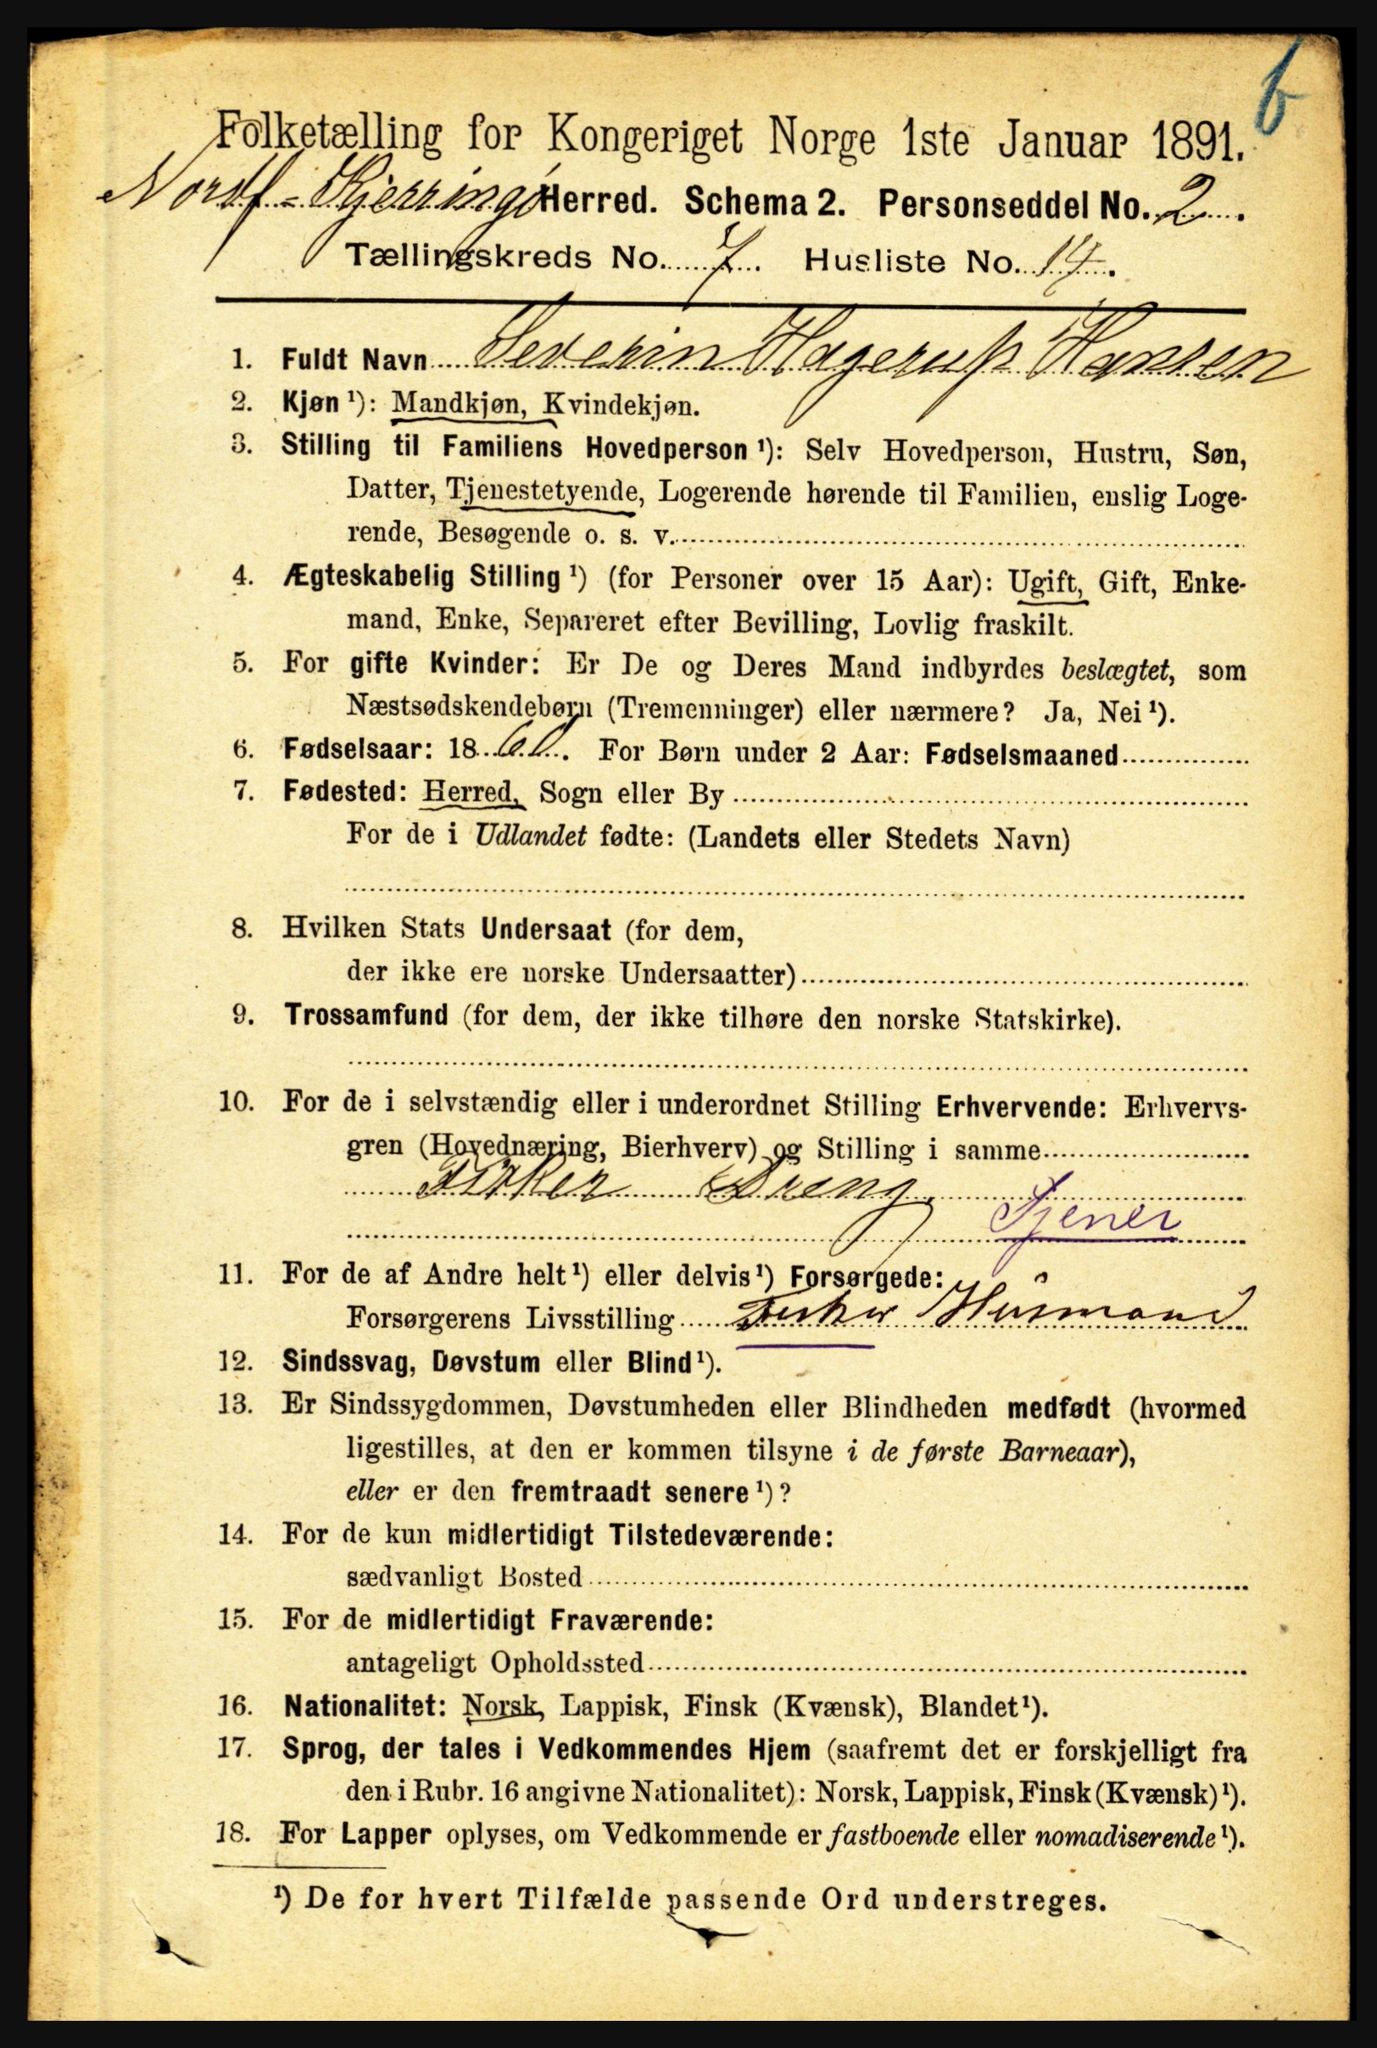 b
Folketælling for Kongeriget Norge 1ste Januar 1891.
Nordf-Kjerringø Herred. Schema 2. Personseddel No. 2.
Tællingskreds No. 7. Husliste No. 14.
1. Fuldt Navn Severin Hagerup Hansen
2. Kjøn ¹): Mandkjøn, Kvindekjøn.
3. Stilling til Familiens Hovedperson ¹): Selv Hovedperson, Hustru, Søn,
Datter, Tjenestetyende, Logerende hørende til Familien, enslig Loge-
rende, Besøgende o. s. v.
4. Ægteskabelig Stilling ¹) (for Personer over 15 Aar): Ugift, Gift, Enke-
mand, Enke, Separeret efter Bevilling, Lovlig fraskilt.
5. For gifte Kvinder: Er De og Deres Mand indbyrdes beslægtet, som
Næstsødskendebørn (Tremenninger) eller nærmere? Ja, Nei ¹).
6. Fødselsaar: 18 . For Børn under 2 Aar: Fødselsmaaned
7. Fødested: Herred, Sogn eller By
For de i Udlandet fødte: (Landets eller Stedets Navn)
8. Hvilken Stats Undersaat (for dem,
der ikke ere norske Undersaatter)
9. Trossamfund (for dem, der ikke tilhøre den norske Statskirke).
10. For de i selvstændig eller i underordnet Stilling Erhvervende: Erhvervs-
gren (Hovednæring, Bierhverv) og Stilling i samme
Fisker Dreng
Tjener
11. For de af Andre helt ¹) eller delvis ¹) Forsørgede:
Forsørgerens Livsstilling Fisker Husmand
12. Sindssvag, Døvstum eller Blind ¹).
13. Er Sindssygdommen, Døvstumheden eller Blindheden medfødt (hvormed
ligestilles, at den er kommen tilsyne i de første Barneaar),
eller er den fremtraadt senere ¹)?
14. For de kun midlertidigt Tilstedeværende:
sædvanligt Bosted
15. For de midlertidigt Fraværende:
antageligt Opholdssted
16. Nationalitet: Norsk, Lappisk, Finsk (Kvænsk), Blandet ¹).
17. Sprog, der tales i Vedkommendes Hjem (saafremt det er forskjelligt fra
den i Rubr. 16 angivne Nationalitet): Norsk, Lappisk, Finsk (Kvænsk) ¹).
18. For Lapper oplyses, om Vedkommende er fastboende eller nomadiserende ¹).
¹) De for hvert Tilfælde passende Ord understreges.